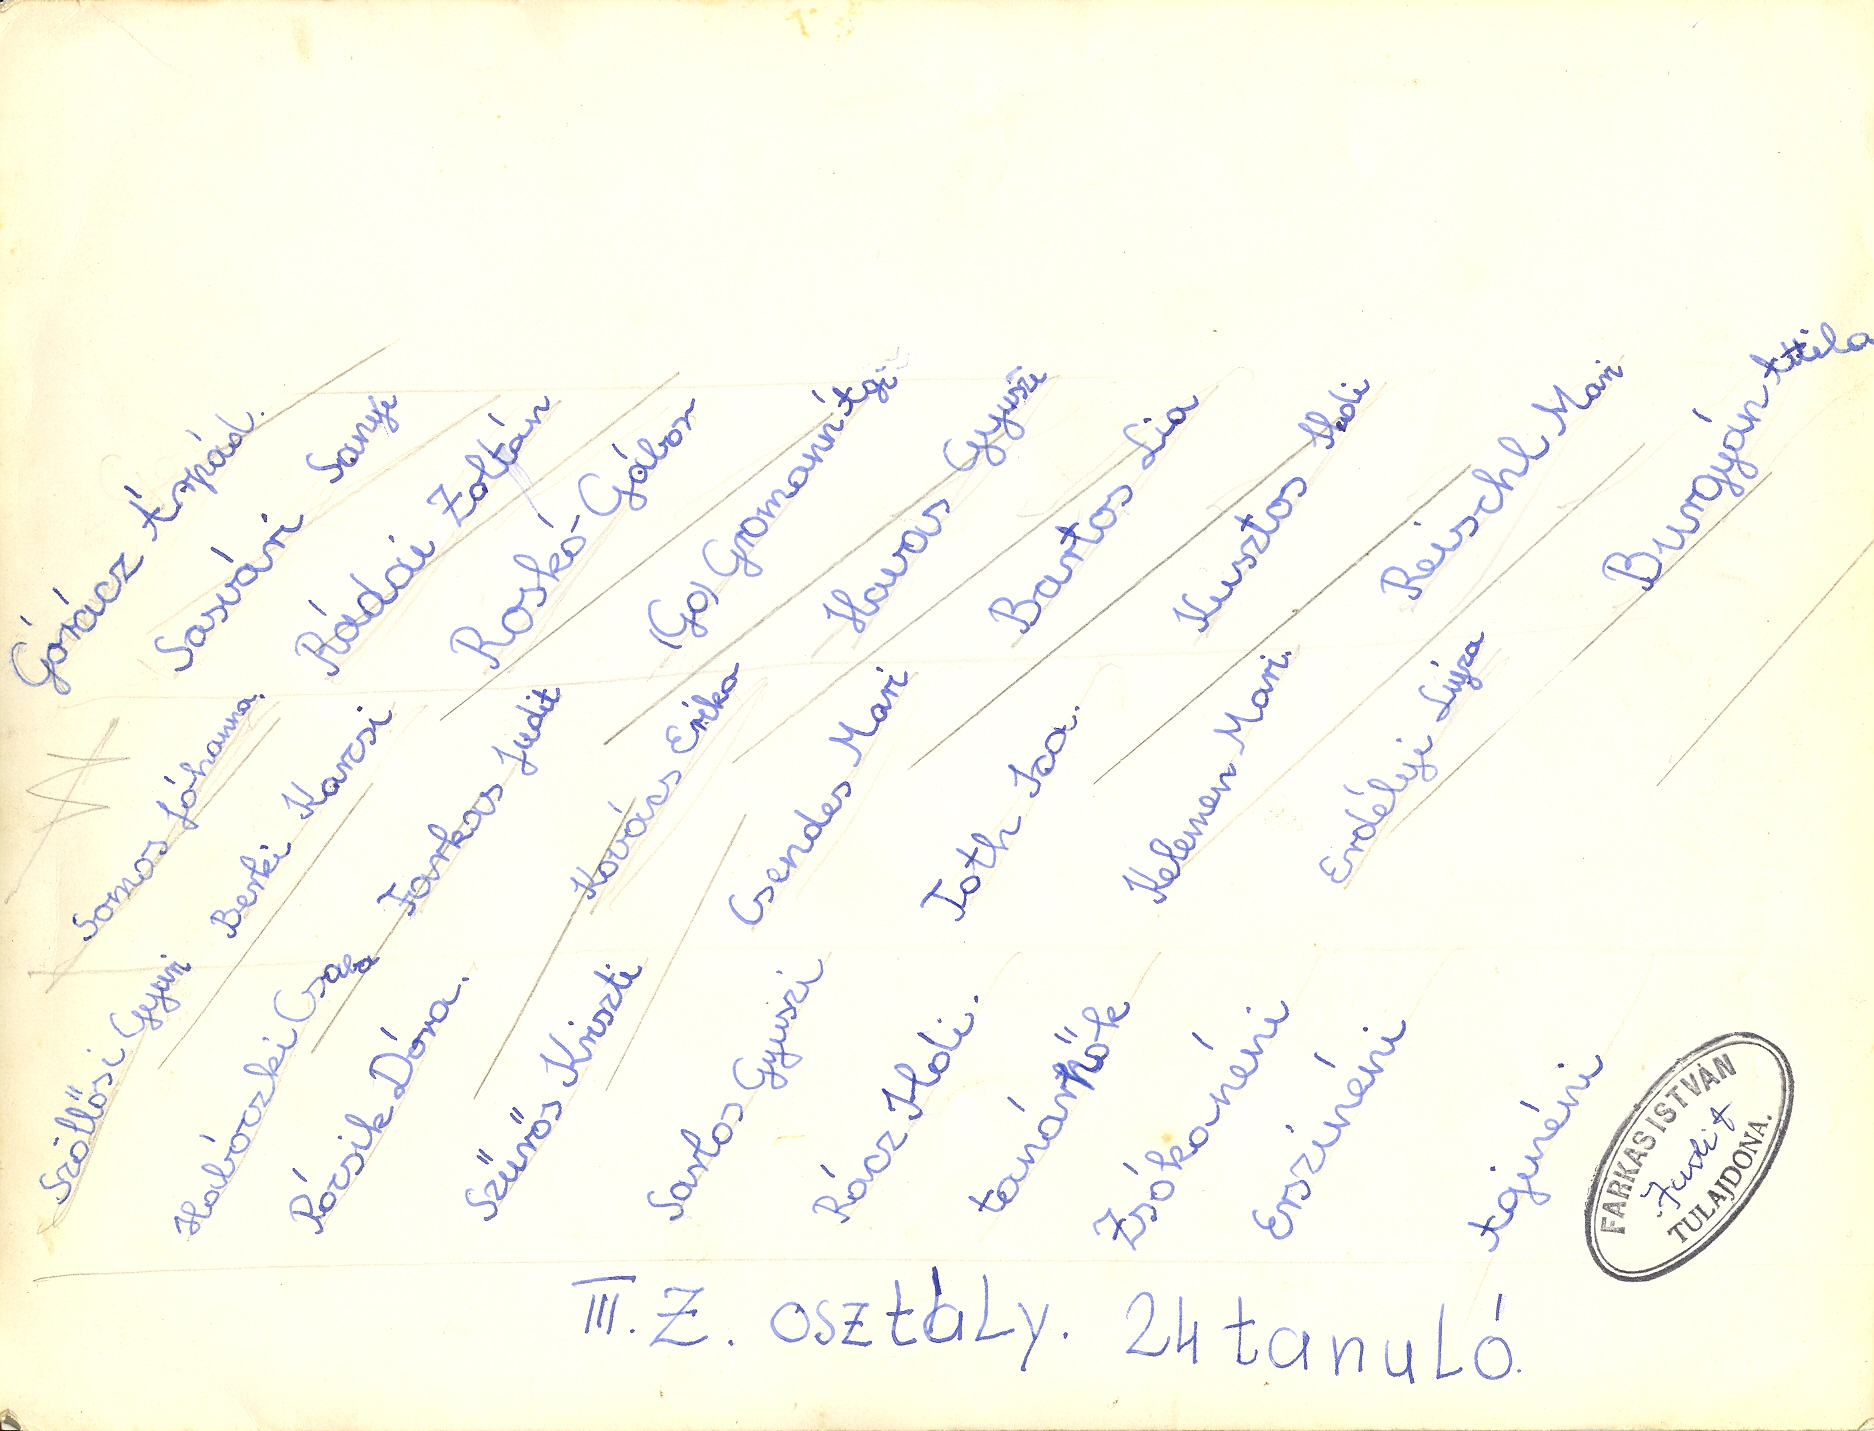 Górácz Árpád.
Sasvári Sanyi
Rádái Zoltán
Roskó-Gábor
(Go) Gromann Ági
Havas Gyuszi
Bartos Lia
Kusztos Ildi
Reischl Mari
Burgyán Attila
Somos Jóhanna.
Berki Karcsi
Farkas Judit
Kovács Erika
Csendes Mari
Toth Ica.
Kelemen Mari.
Erdélyi Lujza
Szőllősi Gyuri
Habóczki Csaba
Rócsik Dóra.
Szűrös Kriszti
Sarlos Gyuszi
Rácz Ildi.
tanárnők
Zsókanéni
Erszinéni
Áginéni
FARKAS ISTVÁN
Judit
TULAJDONA.
III. Z. osztály. 24 tanuló.